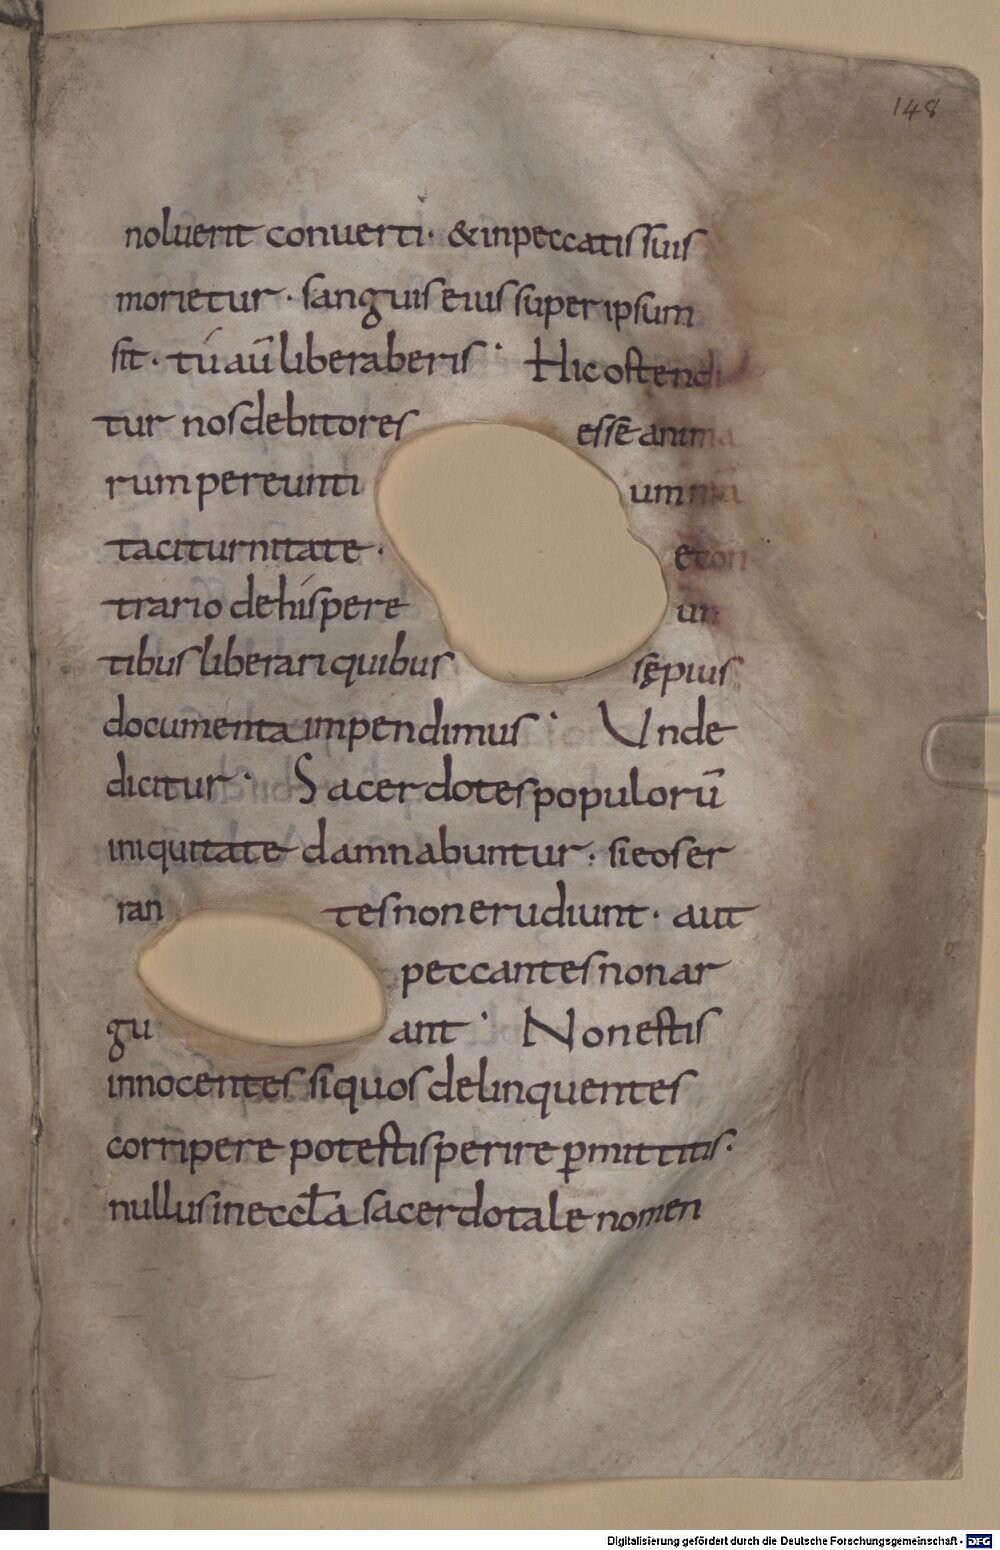 148
noluerit conuerti · & inpeccatis suis
morietur · sanguis eius super ipsum
sit · tu aū liberaberis · Hic ostendi
tur nos debitores essē anima
rum pereunti um
taciturnitate · et con
trario de his pere un
tibus liberari quibus sępius
documenta impendimus · Unde
dicitur · Sacerdotes populorū
iniquitate damnabuntur · si eos er
ran tes non erudiunt · aut
peccantes non ar
gu ant · Non estis
innocentes si quos delinquentes
corripere potestis perire ꝑmittitis ·
nullus in eccl̄a sacerdotale nomen
Digitalisierung gefördert durch die Deutsche Forschungsgemeinschaft - DFG